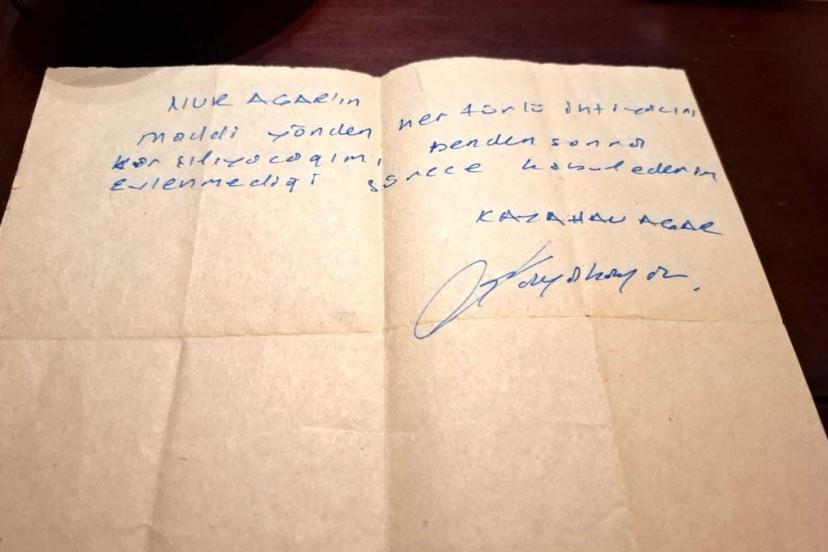 NUR AGAR'ın her türlü ihtiyacını
maddi yönden benden sonra
karşılıyacağımı,
Evlenmediği sürece kabul ederim
KAYAHAN AÇAR